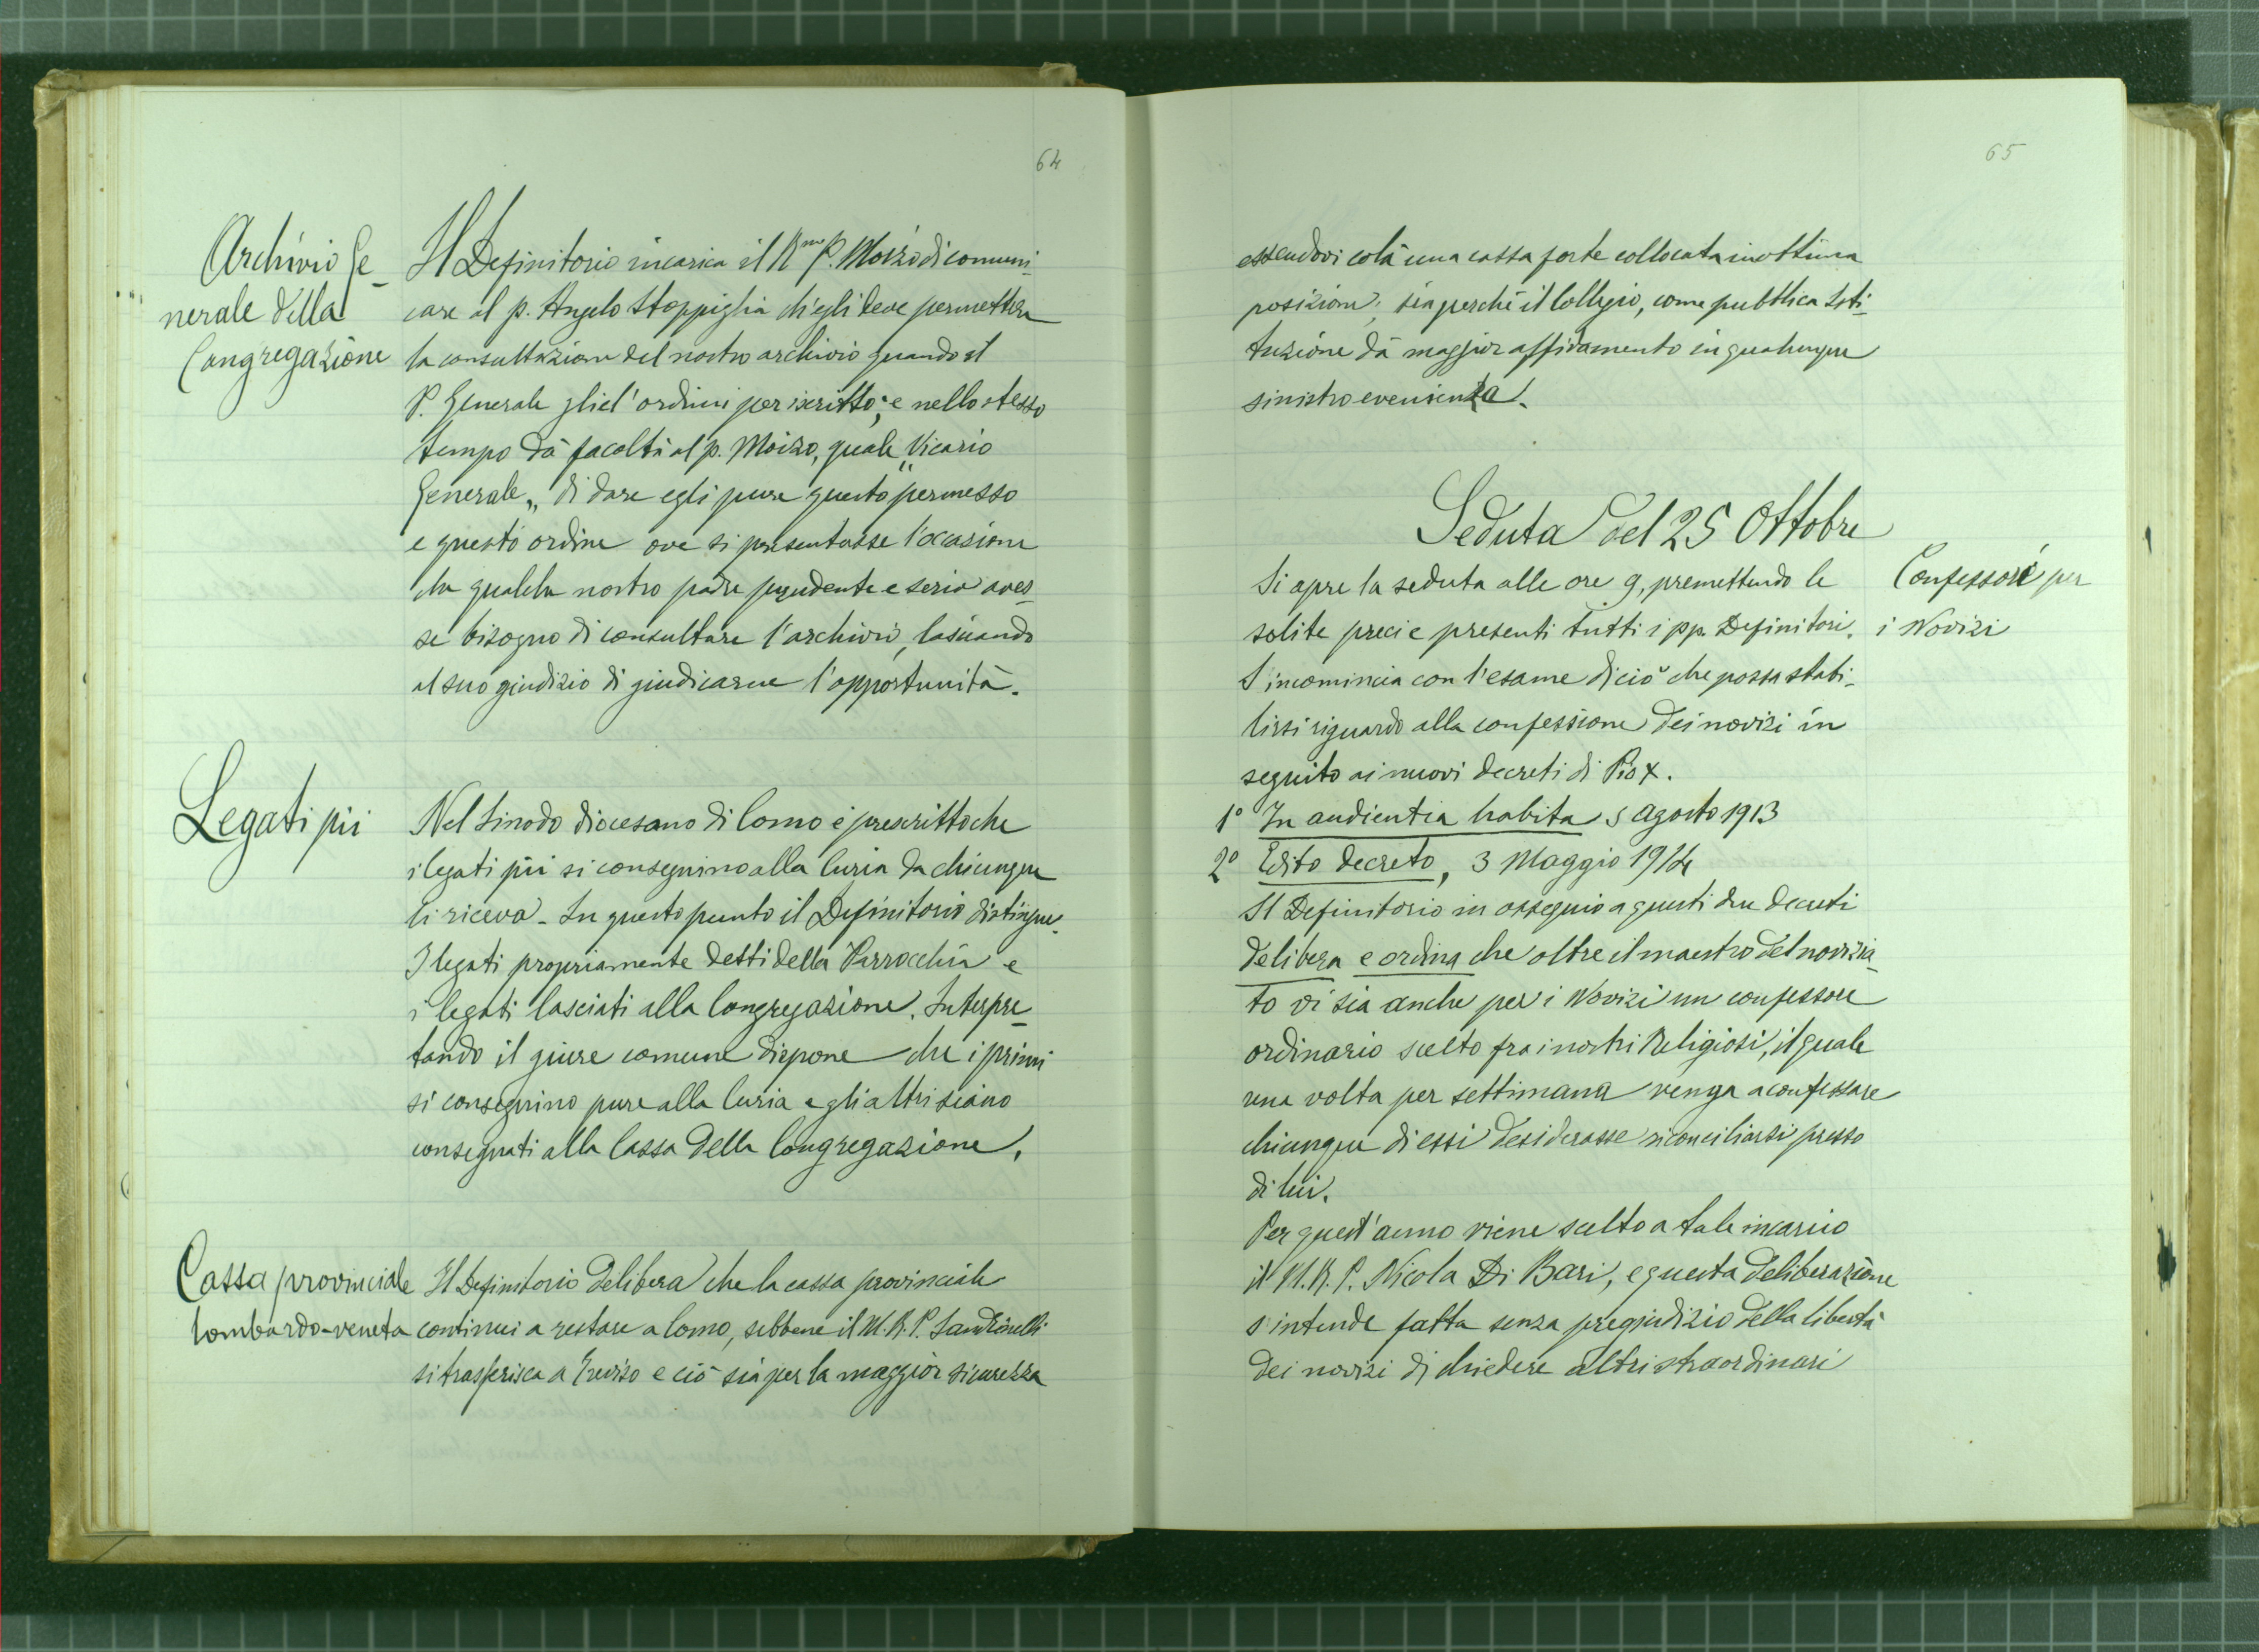 64
Archivio Ge-
nerale della
Congregazione
Il Definitorio incarica il Rmo P. Moizo di comuni-
care al p. Angelo Stoppiglia ch'egli deve permettere
la consultazione del nostro archivio quando il
P. Generale gliel'ordini per iscritto; e nello stesso
tempo dà facoltà al p. Moizo, quale „Vicario
Generale„ di dare egli pure questo permesso
e questo ordine ove si presentasse l'occasione
che qualche nostro padre prudente e serio aves-
se bisogno di consultare l'archivio, lasciando
al suo giudizio di giudicarne l'opportunità.
Legati pii
Nel Sinodo diocesano di Como è prescritto che
i legati pii si consegnino alla Curia da chiunque
li riceva - In questo punto il Definitorio distingue.
I legati propriamente detti della Parrocchia e
i legati lasciati alla Congregazione. Interpre-
tando il giure comune dispone che i primi
si consegnino pure alla Curia e gli altri siano
consegnati alla Cassa della Congregazione.
Cassa provinciale
lombardo-veneta
Il Definitorio delibera che la cassa provinciale
continui a restare a Como, sebbene il M. R. P. Sandrinelli
si trasferisca a Treviso e ciò sia per la maggior sicurezza
65
essendovi colà una cassa forte collocata in ottima
posizione; sia perchè il Collegio, come pubblica Isti-
tuzione dà maggior affidamento in qualunque
sinistra evenienza.
Seduta del 25 Ottobre
Confessori per
i Novizi
Si apre la seduta alle ore 9, premettendo le
solite preci e presenti tutti i pp. Definitori.
S'incomincia con l'esame di ciò che possa stabi-
lirsi riguardo alla confessione dei novizi in
seguito ai nuovi decreti di Pio X.
1° In audientia habita 5 Agosto 1913
2° Edito decreto, 3 Maggio 1914
Il Definitorio in ossequio a questi due decreti
delibera e ordina che oltre il maestro del novizia-
to vi sia anche per i Novizi un confessore
ordinario scelto fra i nostri Religiosi, il quale
una volta per settimana venga a confessare
chiunque di essi desiderasse riconciliarsi presso
di lui.
Per quest'anno viene scelto a tale incarico
il M. R. P. Nicola Di Bari, e questa deliberazione
s'intende fatta senza pregiudizio della libertà
dei novizi di chiedere altri straordinari